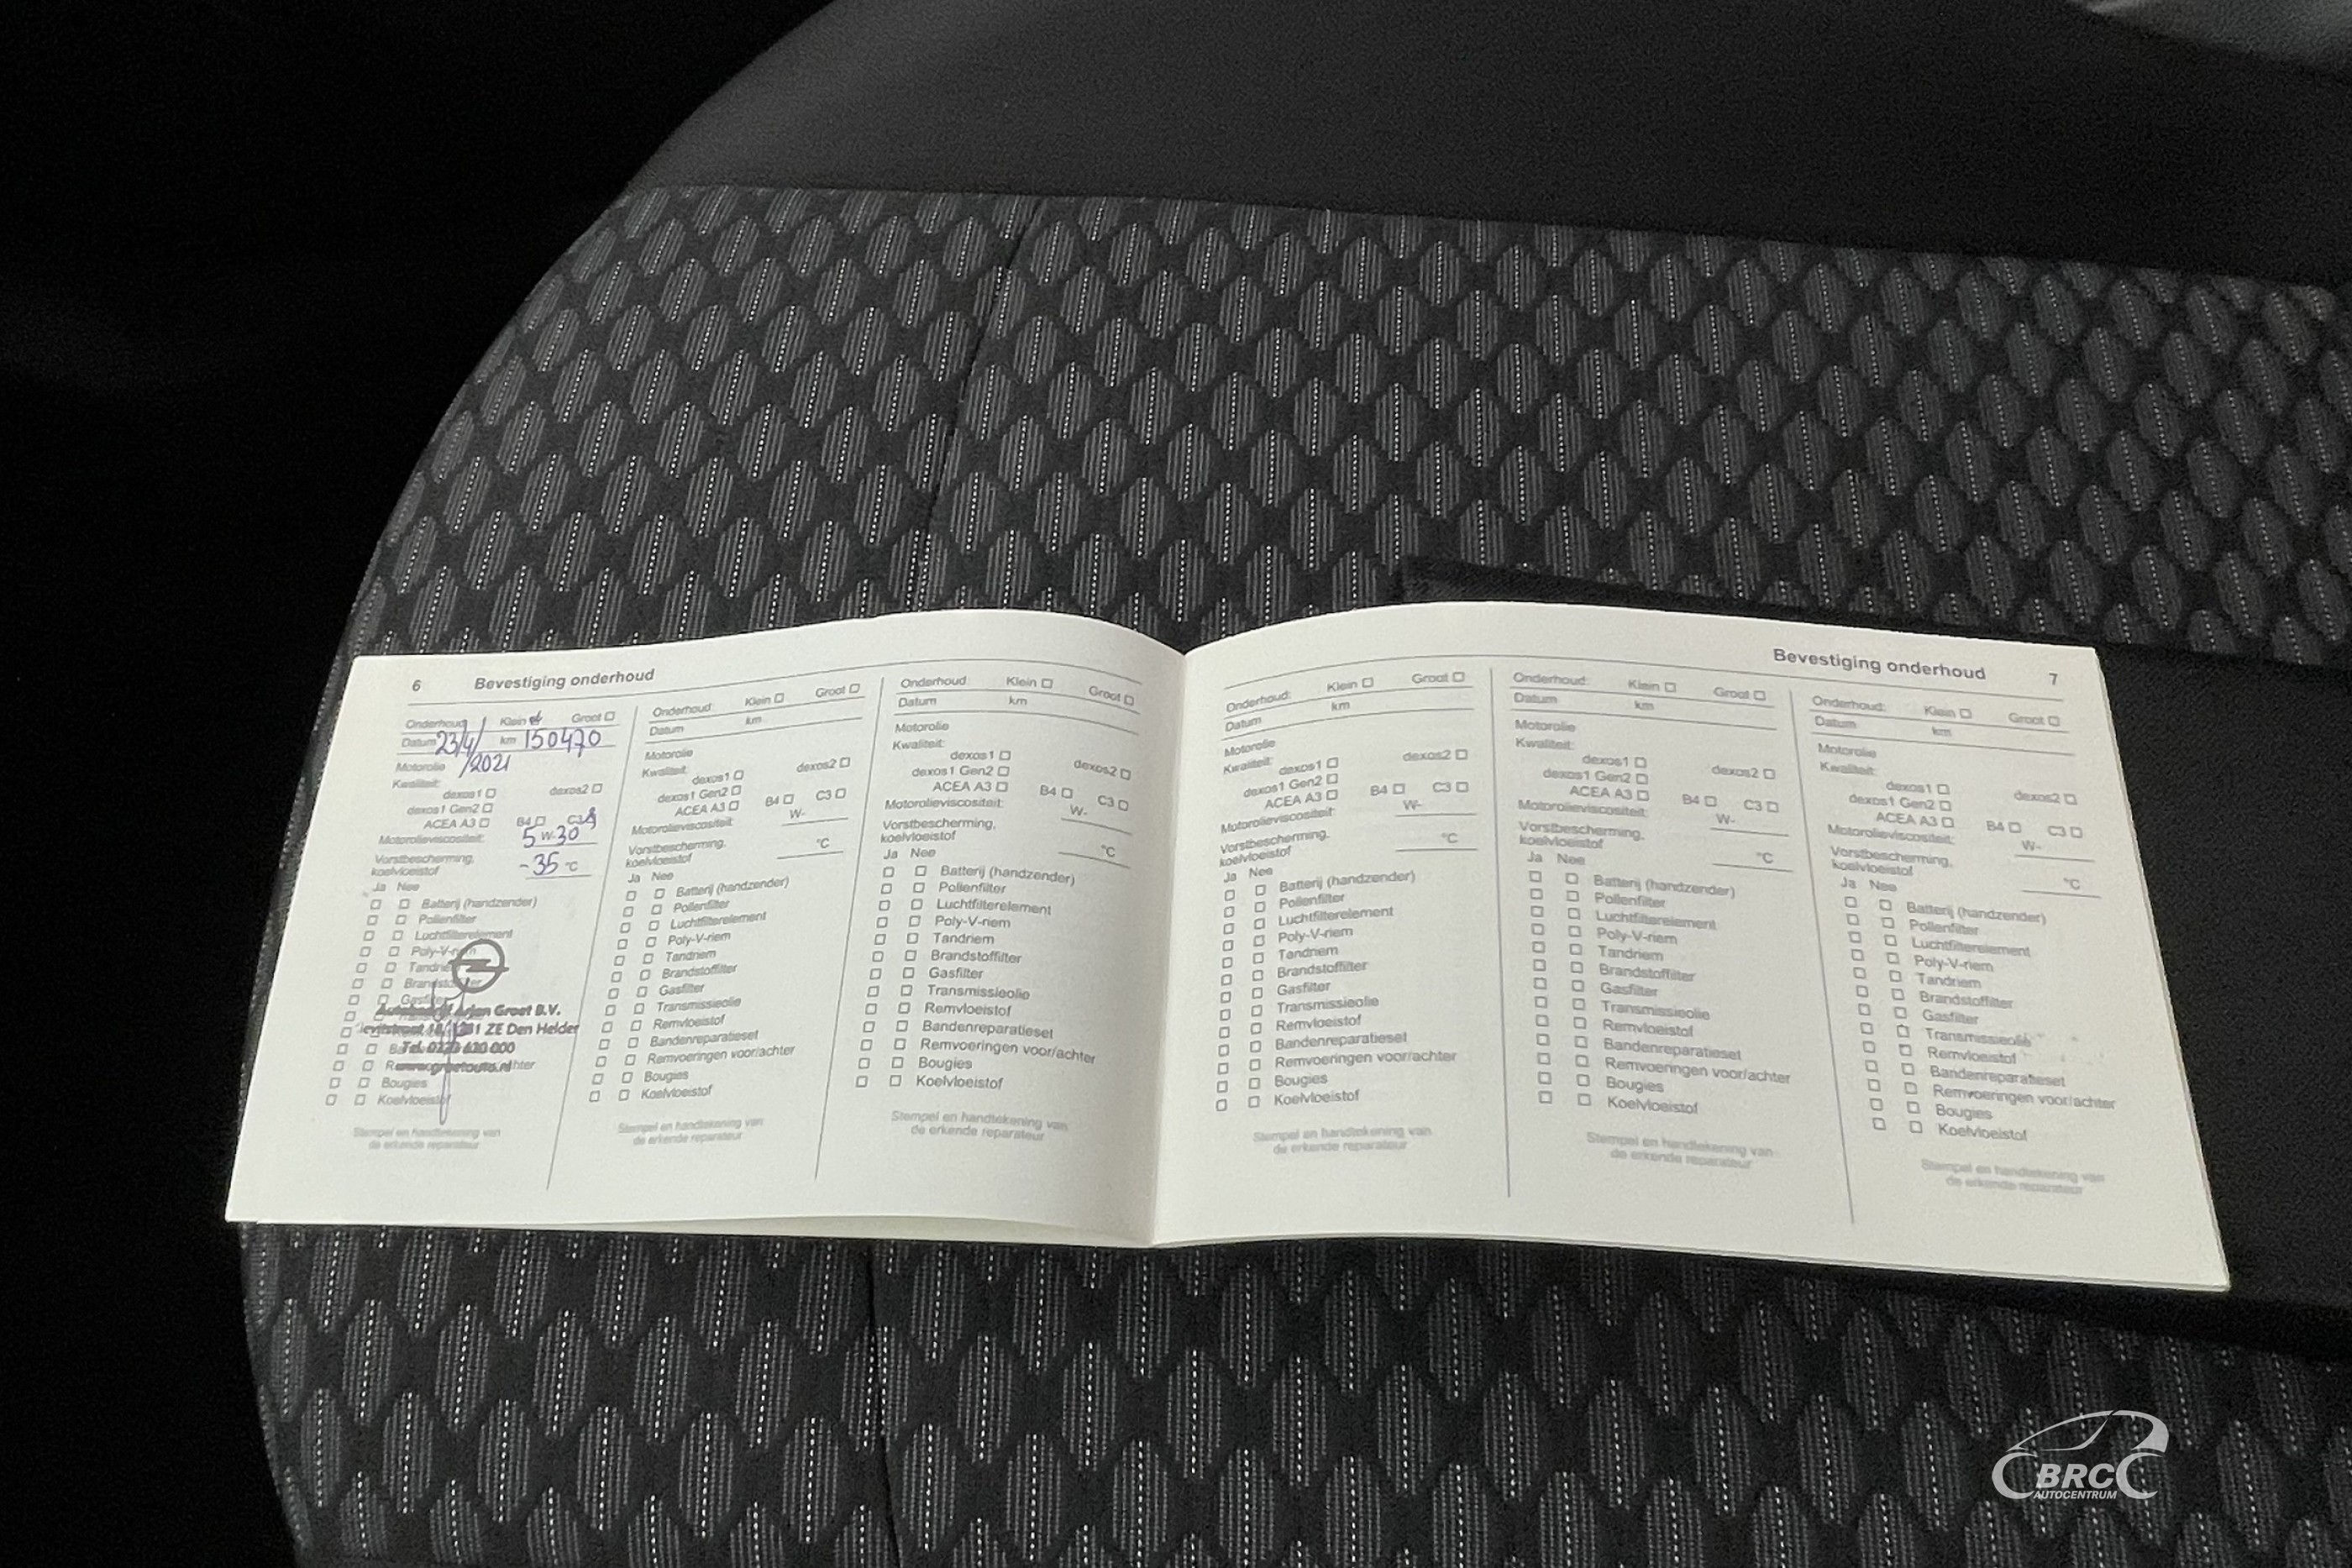 6 Bevestiging onderhoud
Onderhoud: Klein Groot
Datum 23/4/ km 150470
/2021
Motorolie
Kwaliteit:
dexos1 dexos2
dexos1 Gen2
ACEA A3 B4 C3
Motorolieviscositeit: 5 W-30
Vorstbescherming,
koelvloeistof -35 °C
Ja Nee
Batterij (handzender)
Pollenfilter
Luchtfilterelement
Poly-V-riem
Tandriem
Brandstoffilter
Gasfilter
Arjan Groet B.V.
1781 ZE Den Helder
Tel. 0223 630 000
www.groetauto.nl
Bougies
Koelvloeistof
Stempel en handtekening van
de erkende reparateur
Onderhoud: Klein Groot
Datum km
Motorolie
Kwaliteit:
dexos1 dexos2
dexos1 Gen2
ACEA A3 B4 C3
Motorolieviscositeit: W-
Vorstbescherming,
koelvloeistof °C
Ja Nee
Batterij (handzender)
Pollenfilter
Luchtfilterelement
Poly-V-riem
Tandriem
Brandstoffilter
Gasfilter
Transmissieolie
Remvloeistof
Bandenreparatieset
Remvoeringen voor/achter
Bougies
Koelvloeistof
Stempel en handtekening van
de erkende reparateur
Onderhoud: Klein Groot
Datum km
Motorolie
Kwaliteit:
dexos1 dexos2
dexos1 Gen2
ACEA A3 B4 C3
Motorolieviscositeit: W-
Vorstbescherming,
koelvloeistof °C
Ja Nee
Batterij (handzender)
Pollenfilter
Luchtfilterelement
Poly-V-riem
Tandriem
Brandstoffilter
Gasfilter
Transmissieolie
Remvloeistof
Bandenreparatieset
Remvoeringen voor/achter
Bougies
Koelvloeistof
Stempel en handtekening van
de erkende reparateur
Bevestiging onderhoud 7
Onderhoud: Klein Groot
Datum km
Motorolie
Kwaliteit:
dexos1 dexos2
dexos1 Gen2
ACEA A3 B4 C3
Motorolieviscositeit: W-
Vorstbescherming,
koelvloeistof °C
Ja Nee
Batterij (handzender)
Pollenfilter
Luchtfilterelement
Poly-V-riem
Tandriem
Brandstoffilter
Gasfilter
Transmissieolie
Remvloeistof
Bandenreparatieset
Remvoeringen voor/achter
Bougies
Koelvloeistof
Stempel en handtekening van
de erkende reparateur
Onderhoud: Klein Groot
Datum km
Motorolie
Kwaliteit:
dexos1 dexos2
dexos1 Gen2
ACEA A3 B4 C3
Motorolieviscositeit: W-
Vorstbescherming,
koelvloeistof °C
Ja Nee
Batterij (handzender)
Pollenfilter
Luchtfilterelement
Poly-V-riem
Tandriem
Brandstoffilter
Gasfilter
Transmissieolie
Remvloeistof
Bandenreparatieset
Remvoeringen voor/achter
Bougies
Koelvloeistof
Stempel en handtekening van
de erkende reparateur
Onderhoud: Klein Groot
Datum km
Motorolie
Kwaliteit:
dexos1 dexos2
dexos1 Gen2
ACEA A3 B4 C3
Motorolieviscositeit: W-
Vorstbescherming,
koelvloeistof °C
Ja Nee
Batterij (handzender)
Pollenfilter
Luchtfilterelement
Poly-V-riem
Tandriem
Brandstoffilter
Gasfilter
Transmissieolie
Remvloeistof
Bandenreparatieset
Remvoeringen voor/achter
Bougies
Koelvloeistof
Stempel en handtekening van
de erkende reparateur
BRC
AUTOCENTRUM